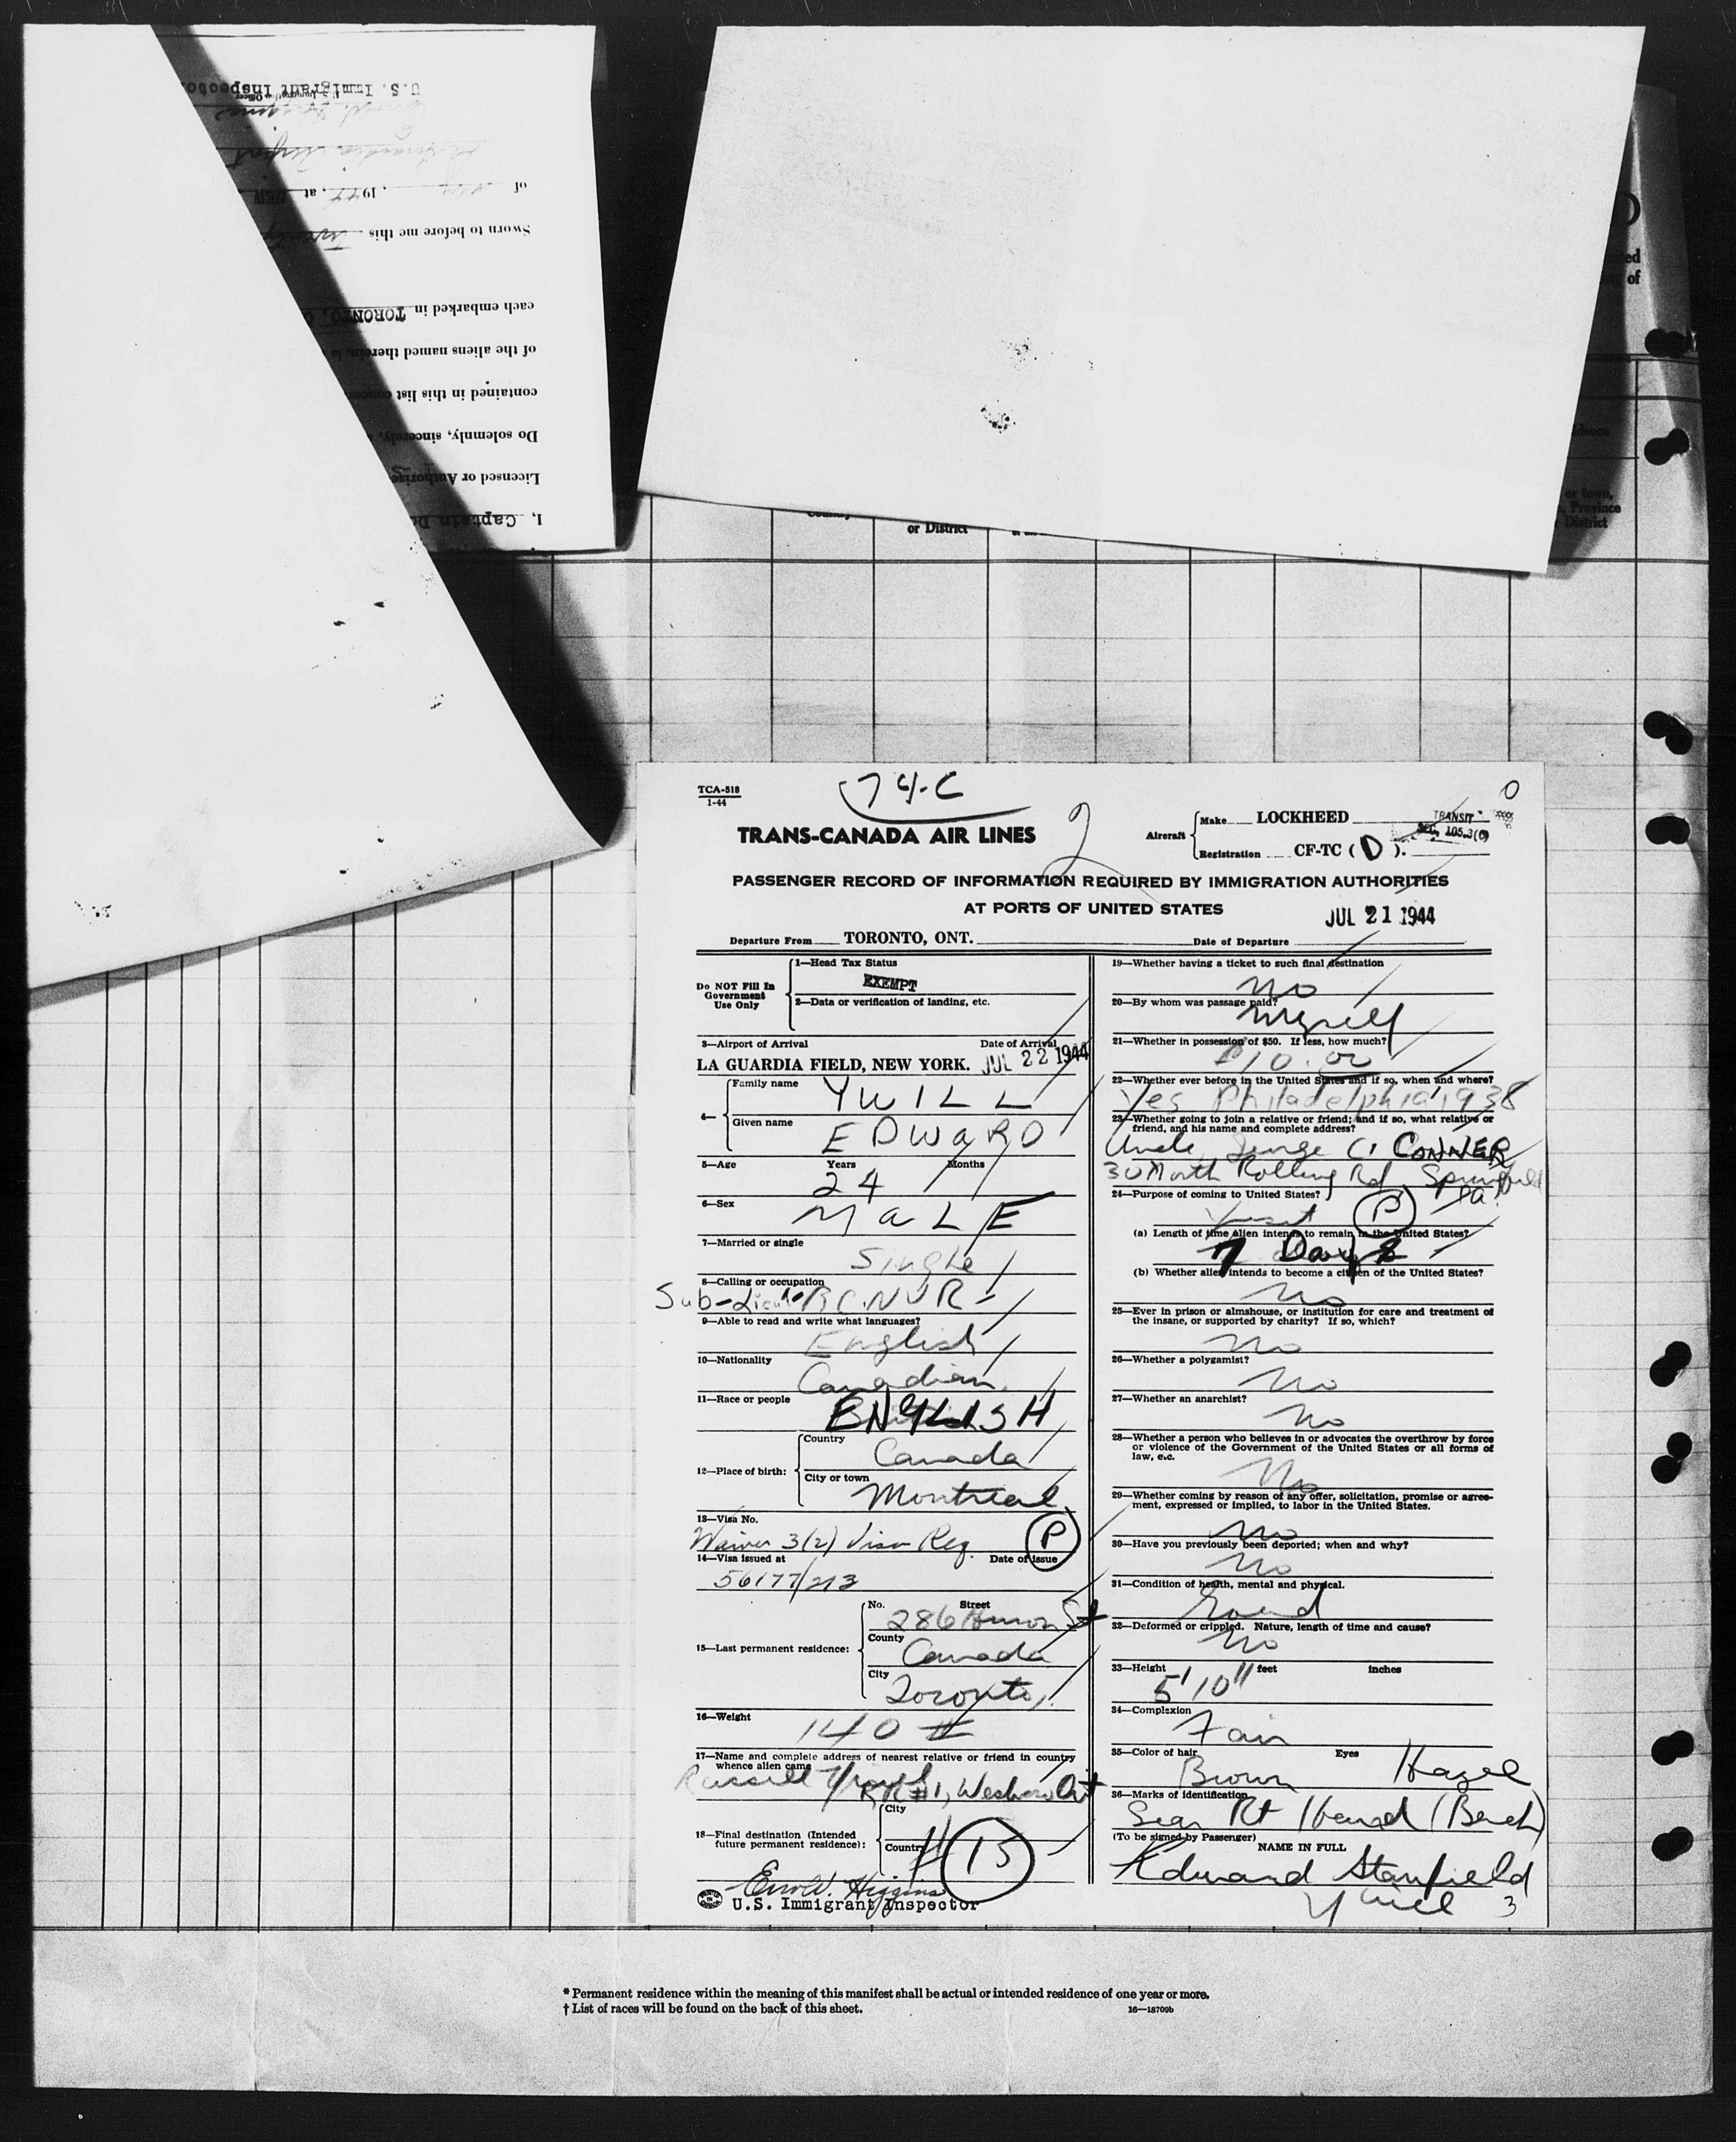 U.S. Immigrant Inspector
Officer
of , 1944, at NEW
Sworn to before me this
each embarked in TORONTO,
of the aliens named therein, is
contained in this list concer
Do solemnly, sincerely,
Licensed or Authorize
I, Captain Do
ed
of
or District
or town,
Province
District
74-C
TCA-518
1-44
2
0
TRANS-CANADA AIR LINES
Aircraft
Make LOCKHEED
Registration CF-TC ( D ).
TRANSIT
SEC. 105.3(c)
PASSENGER RECORD OF INFORMATION REQUIRED BY IMMIGRATION AUTHORITIES
AT PORTS OF UNITED STATES
JUL 21 1944
Departure From TORONTO, ONT. Date of Departure
Do NOT Fill In
Government
Use Only
1—Head Tax Status
EXEMPT
2—Data or verification of landing, etc.
3—Airport of Arrival Date of Arrival
LA GUARDIA FIELD, NEW YORK. JUL 22 1944
4—
Family name YUILL
Given name EDWARD
5—Age Years Months
24
6—Sex
MALE
7—Married or single
Single
8—Calling or occupation
Sub-Lieut. R.C.N.V.R.
9—Able to read and write what languages?
English
10—Nationality
Canadian
11—Race or people
ENGLISH
12—Place of birth:
Country
Canada
City or town
Montreal
13—Visa No.
Waiver 3(2) Visa Reg. P
14—Visa issued at Date of issue
56177/213
15—Last permanent residence:
No. Street
286 Huron St
County
Canada
City
Toronto,
16—Weight
140 #
17—Name and complete address of nearest relative or friend in country
whence alien came
Russell Yuill
RR#1, Westboro Ont
18—Final destination (Intended
future permanent residence):
City
Country
# 13
Errol W. Higgins
U.S. Immigrant Inspector
19—Whether having a ticket to such final destination
No
20—By whom was passage paid?
Myself
21—Whether in possession of $50. If less, how much?
$10.00
22—Whether ever before in the United States and if so, when and where?
Yes Philadelphia 1938
23—Whether going to join a relative or friend; and if so, what relative or
friend, and his name and complete address?
Uncle George C. CONNER
30 North Rolling Rd, Springfield
Pa.
24—Purpose of coming to United States?
Visit P
(a) Length of time alien intends to remain in the United States?
7 Days
(b) Whether alien intends to become a citizen of the United States?
No
25—Ever in prison or almshouse, or institution for care and treatment of
the insane, or supported by charity? If so, which?
No
26—Whether a polygamist?
No
27—Whether an anarchist?
No
28—Whether a person who believes in or advocates the overthrow by force
or violence of the Government of the United States or all forms of
law, etc.
No
29—Whether coming by reason of any offer, solicitation, promise or agree-
ment, expressed or implied, to labor in the United States.
No
30—Have you previously been deported; when and why?
No
31—Condition of health, mental and physical.
Good
32—Deformed or crippled. Nature, length of time and cause?
No
33—Height feet inches
5' 10"
34—Complexion
Fair
35—Color of hair Eyes
Brown Hazel
36—Marks of identification
Scar Rt Hand
(To be signed by Passenger)
NAME IN FULL
Edward Stanfield
Yuill 3
* Permanent residence within the meaning of this manifest shall be actual or intended residence of one year or more.
† List of races will be found on the back of this sheet. 16—18709b